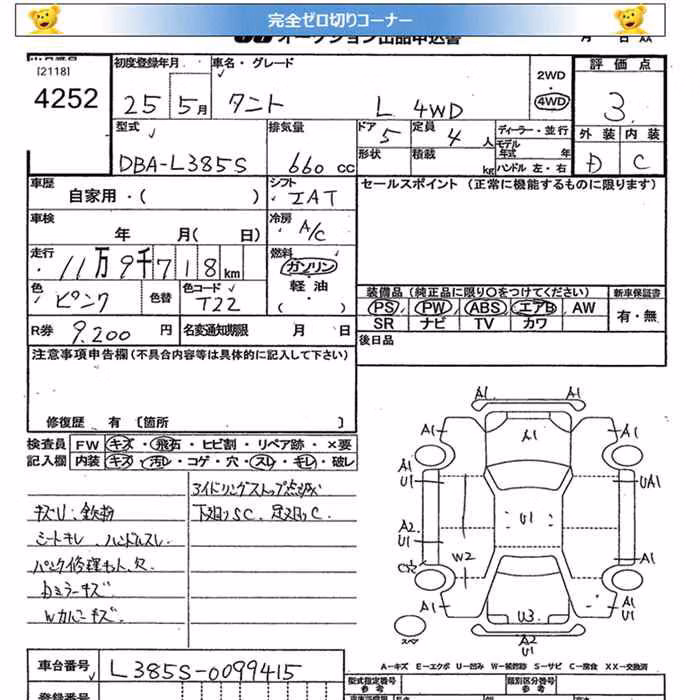 完全ゼロ切りコーナー
オークション出品申込書
[2118]
4252
初度登録年月 25 5月
車名・グレード タント L 4WD
2WD
4WD
評価点 3
外装 内装
D C
型式 DBA-L385S
排気量 660 CC
ドア 5
定員 4 人
形状
積載 kg
ディーラー・並行
モデル年式 年
ハンドル 左・右
車歴 自家用・( )
シフト IAT
セールスポイント (正常に機能するものに限ります)
車検 年 月( 日)
冷房 A/C
走行 11万9千718 km
燃料 ガソリン
軽油
( )
色 ピンク
色替
色コード T22
装備品 (純正品に限り〇をつけてください)
新車保証書
PS PW ABS エアB AW
SR ナビ TV カワ
有・無
R券 9.200 円
名変通知期限 月 日
後日品
注意事項申告欄(不具合内容等は具体的に記入して下さい)
修復歴 有 [箇所 ]
検査員 FW キズ・飛石・ヒビ割・リペア跡・×要
記入欄 内装 キズ・汚レ・コゲ・穴・スレ・キレ・破レ
アイドリングストップ点灯
キズU、鉄粉
下廻りSC、足廻りC
シートキレ、ハンドルスレ
パンク修理キット欠
Dミラーキズ
Wカバーキズ
A1 A1
A1 A1 A1
A1
U1 UA1
A2
U1 U1
W2 A1
A1 A1
U3
スペ A2
U1
A-キズ E-エクボ U-凹み W-補修跡 S-サビ C-腐食 XX-交換済
車台番号 L385S-0099415
型式指定番号
参考
類別区分番号
参考
登録番号